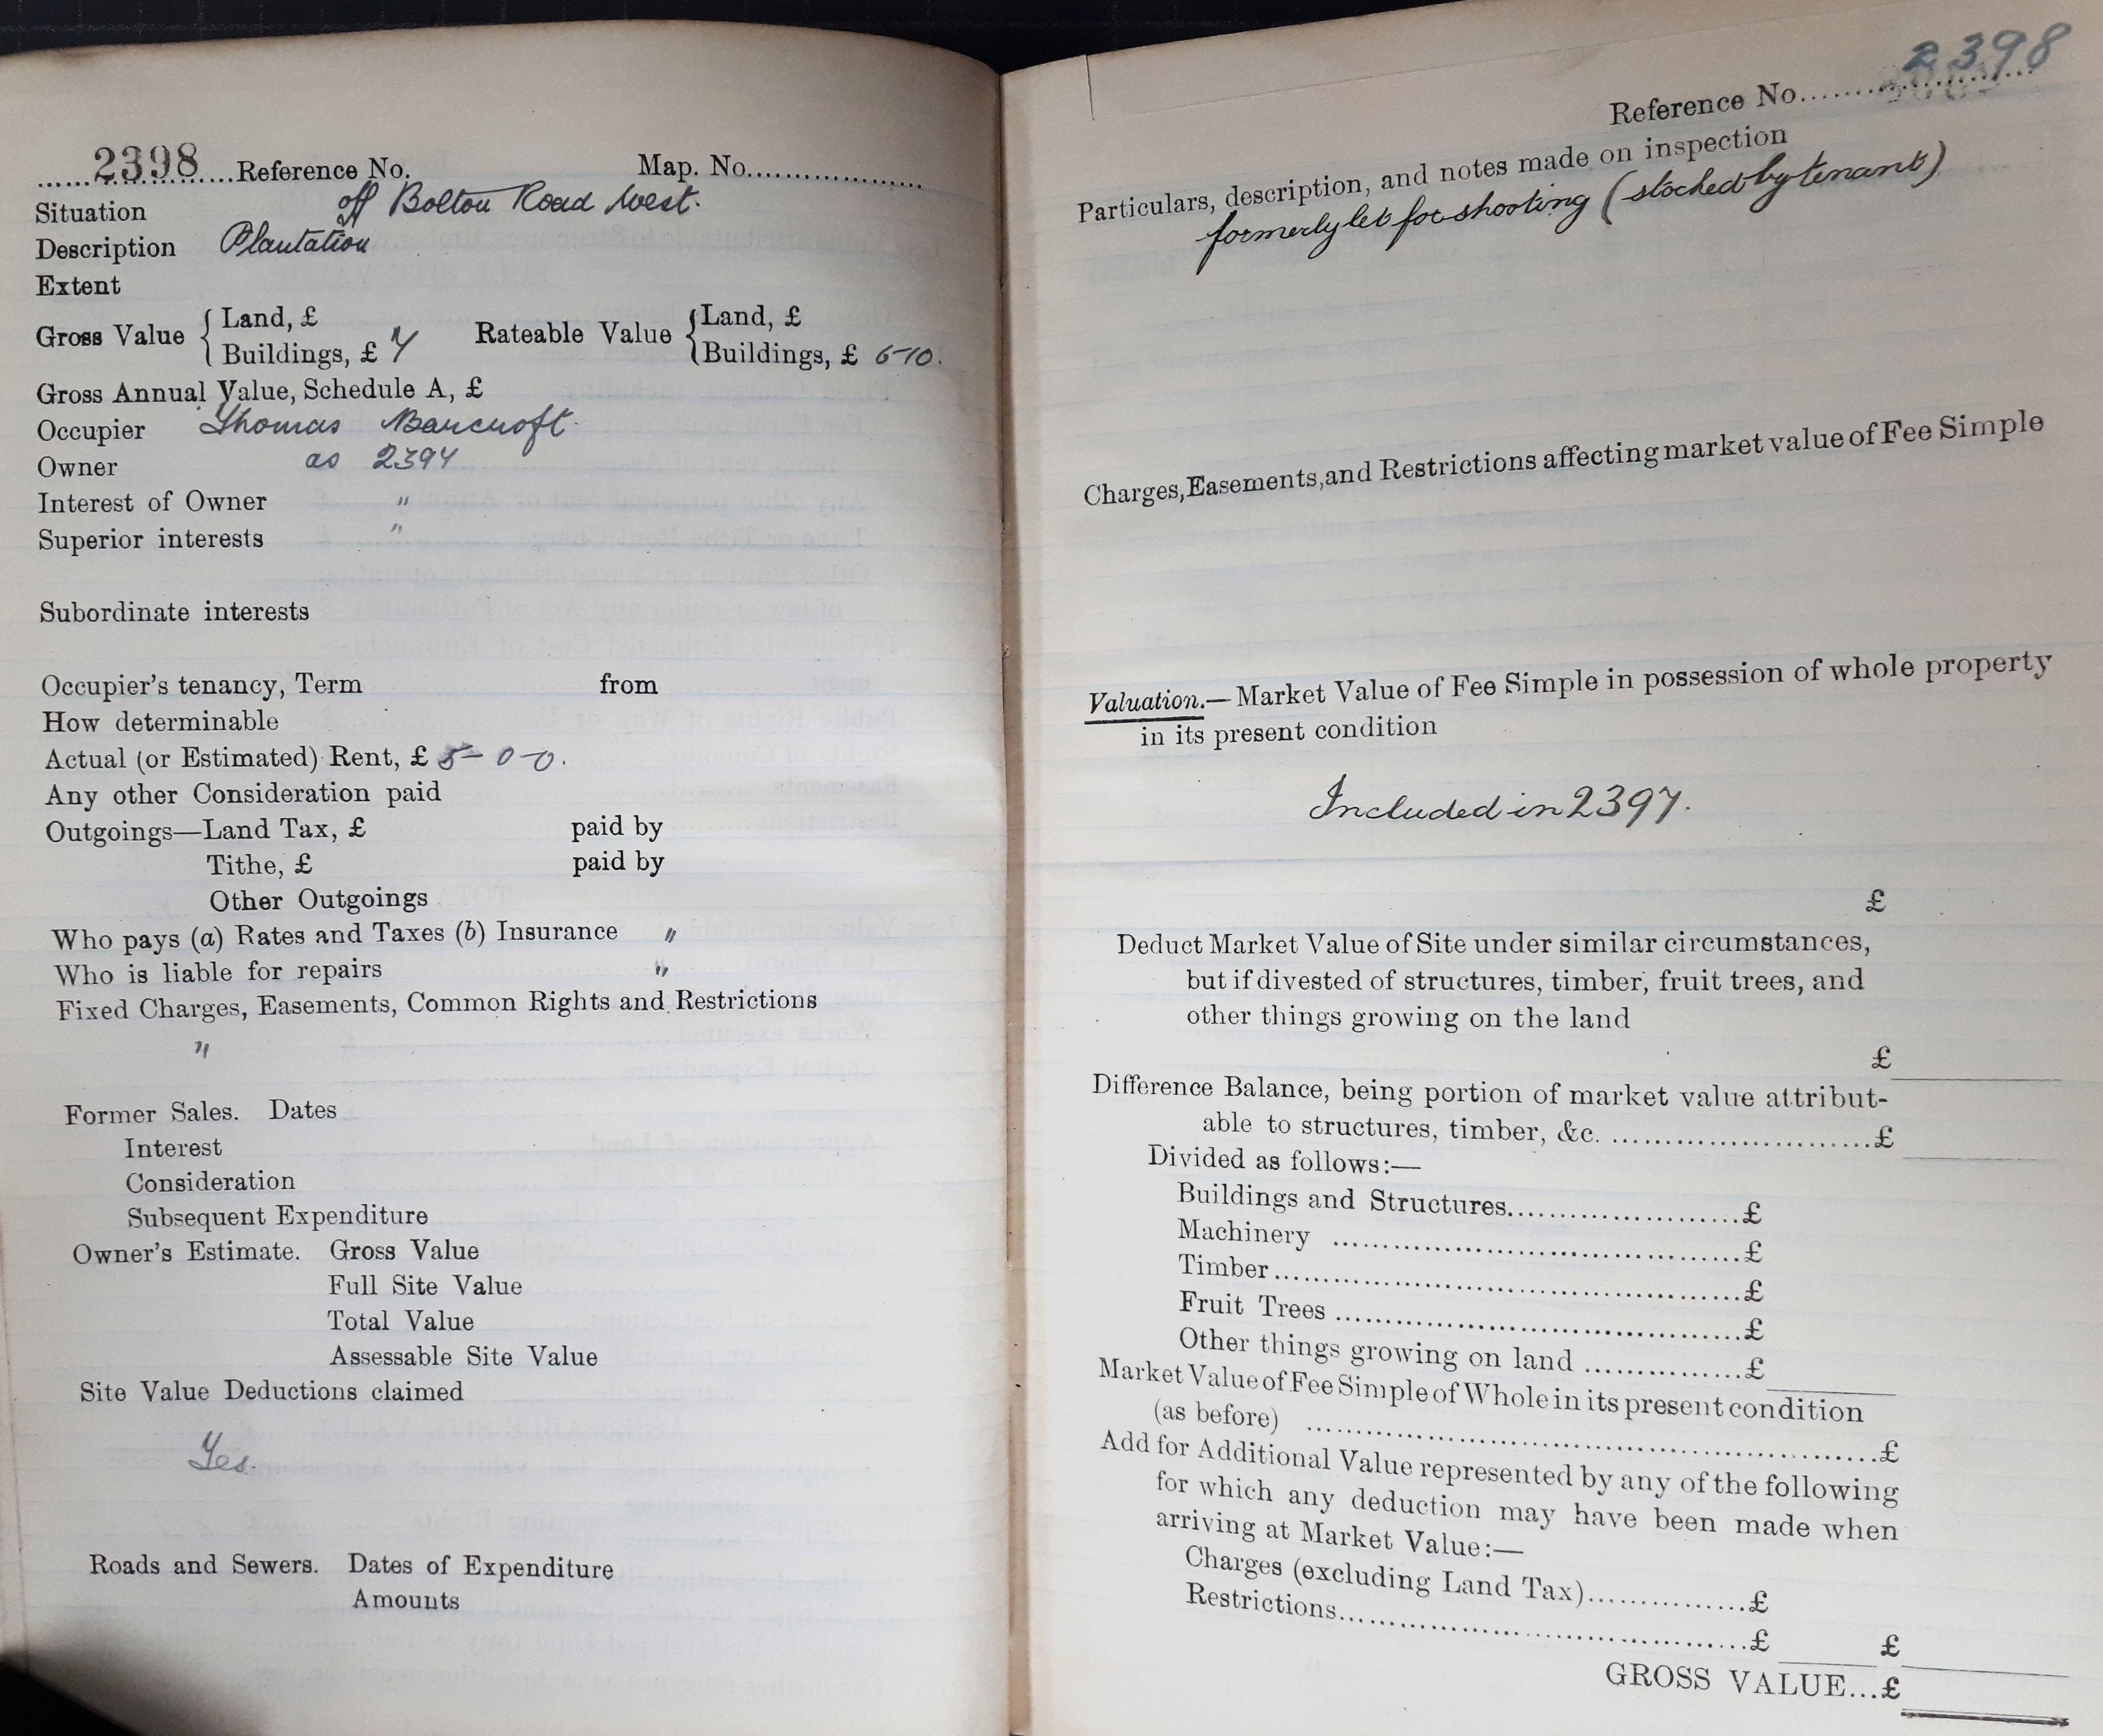 2398 Reference No. Map. No.
Situation off Bolton Road West.
Description Plantation
Extent
Gross Value { Land, £
Buildings, £ 7
Rateable Value { Land, £
Buildings, £ 6-10.
Gross Annual Value, Schedule A, £
Occupier Thomas Bancroft
Owner as 2397
Interest of Owner "
Superior interests "
Subordinate interests
Occupier's tenancy, Term from
How determinable
Actual (or Estimated) Rent, £ 5-0-0.
Any other Consideration paid
Outgoings—Land Tax, £ paid by
Tithe, £ paid by
Other Outgoings
Who pays (a) Rates and Taxes (b) Insurance "
Who is liable for repairs "
Fixed Charges, Easements, Common Rights and Restrictions
"
Former Sales. Dates
Interest
Consideration
Subsequent Expenditure
Owner's Estimate. Gross Value
Full Site Value
Total Value
Assessable Site Value
Site Value Deductions claimed
Yes.
Roads and Sewers. Dates of Expenditure
Amounts
2398
Reference No.
Particulars, description, and notes made on inspection
formerly let for shooting (stocked by tenant)
Charges, Easements, and Restrictions affecting market value of Fee Simple
Valuation.—Market Value of Fee Simple in possession of whole property
in its present condition
Included in 2397.
£
Deduct Market Value of Site under similar circumstances,
but if divested of structures, timber, fruit trees, and
other things growing on the land
£
Difference Balance, being portion of market value attribut-
able to structures, timber, &c. £
Divided as follows:—
Buildings and Structures £
Machinery £
Timber £
Fruit Trees £
Other things growing on land £
Market Value of Fee Simple of Whole in its present condition
(as before) £
Add for Additional Value represented by any of the following
for which any deduction may have been made when
arriving at Market Value:—
Charges (excluding Land Tax) £
Restrictions £ £
GROSS VALUE...£